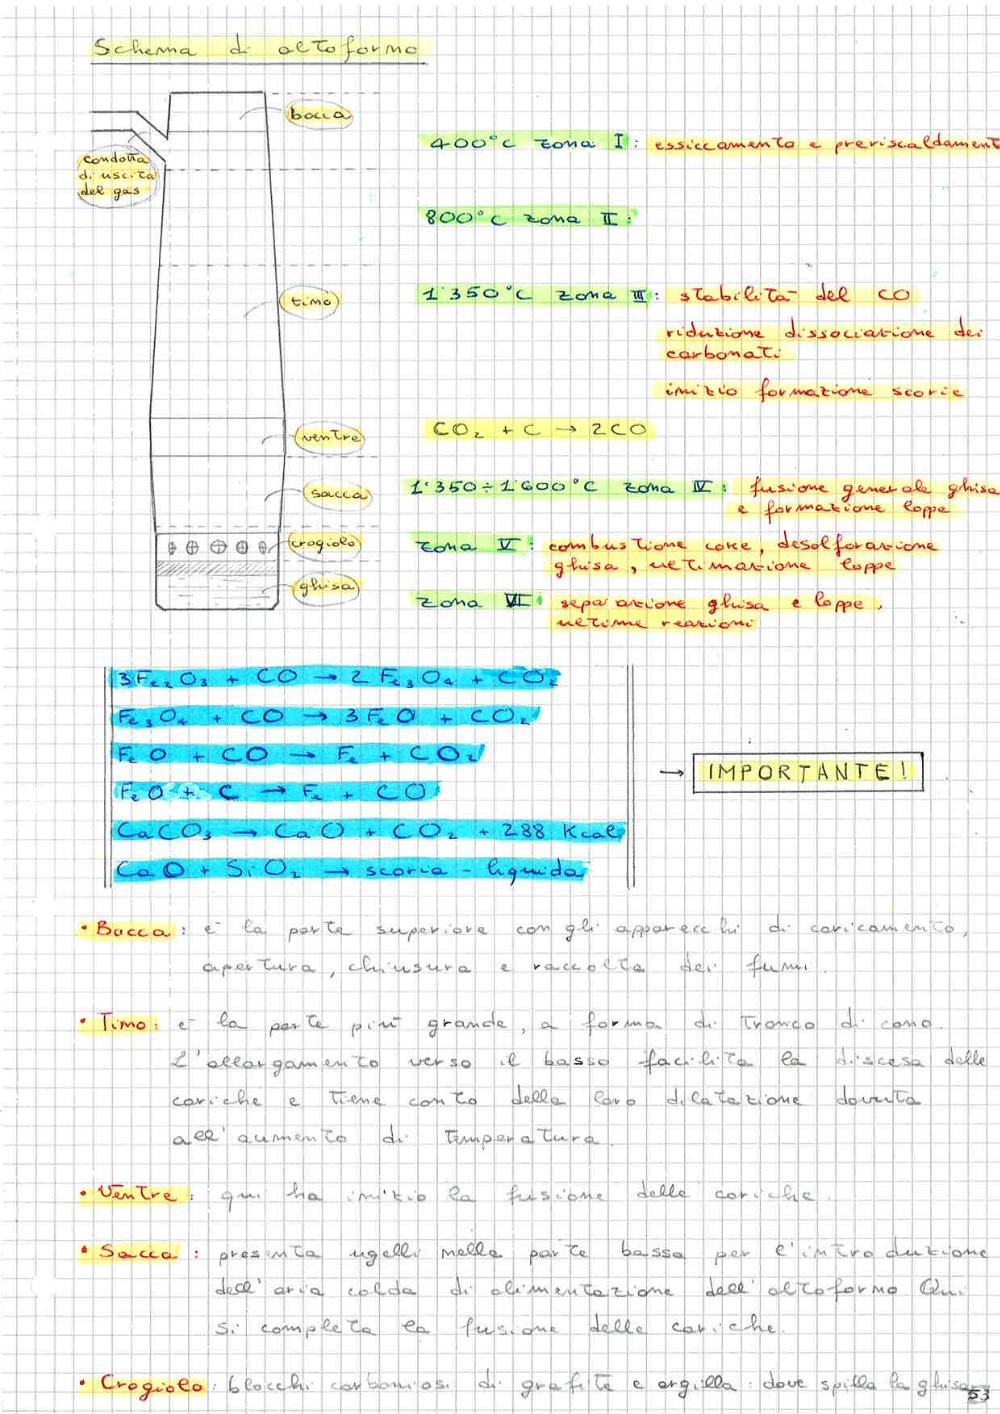 Schema di altoforno
bocca
condotta
di uscita
del gas
400°C zona I: essiccamento e preriscaldament
800°C zona II:
timo
1'350°C zona III: stabilità del CO
riduzione dissociazione dei
carbonati
inizio formazione scorie
ventre
CO₂ + C → 2CO
sacca
1'350÷1'600°C zona IV: fusione generale ghisa
e formazione loppe
crogiolo
zona V: combustione coke, desolforazione
ghisa, ultimazione loppe
ghisa
zona VI: separazione ghisa e loppe,
ultime reazioni
3Fe₂O₃ + CO → 2 Fe₃O₄ + CO₂
Fe₃O₄ + CO → 3FeO + CO₂
FeO + CO → Fe + CO₂
→ IMPORTANTE!
FeO + C → Fe + CO
CaCO₃ → CaO + CO₂ + 288 Kcal
CaO + SiO₂ → scoria - liquida
• Bocca: è la parte superiore con gli apparecchi di caricamento,
apertura, chiusura e raccolta dei fumi.
• Timo: è la parte più grande, a forma di tronco di cono.
L'allargamento verso il basso facilita la discesa delle
cariche e tiene conto della loro dilatazione dovuta
all'aumento di temperatura.
• Ventre: qui ha inizio la fusione delle cariche.
• Sacca: presenta ugelli nella parte bassa per l'introduzione
dell'aria calda di alimentazione dell'altoforno. Qui
si completa la fusione delle cariche.
• Crogiolo: blocchi carboniosi di grafite e argilla: dove spilla la ghisa
53